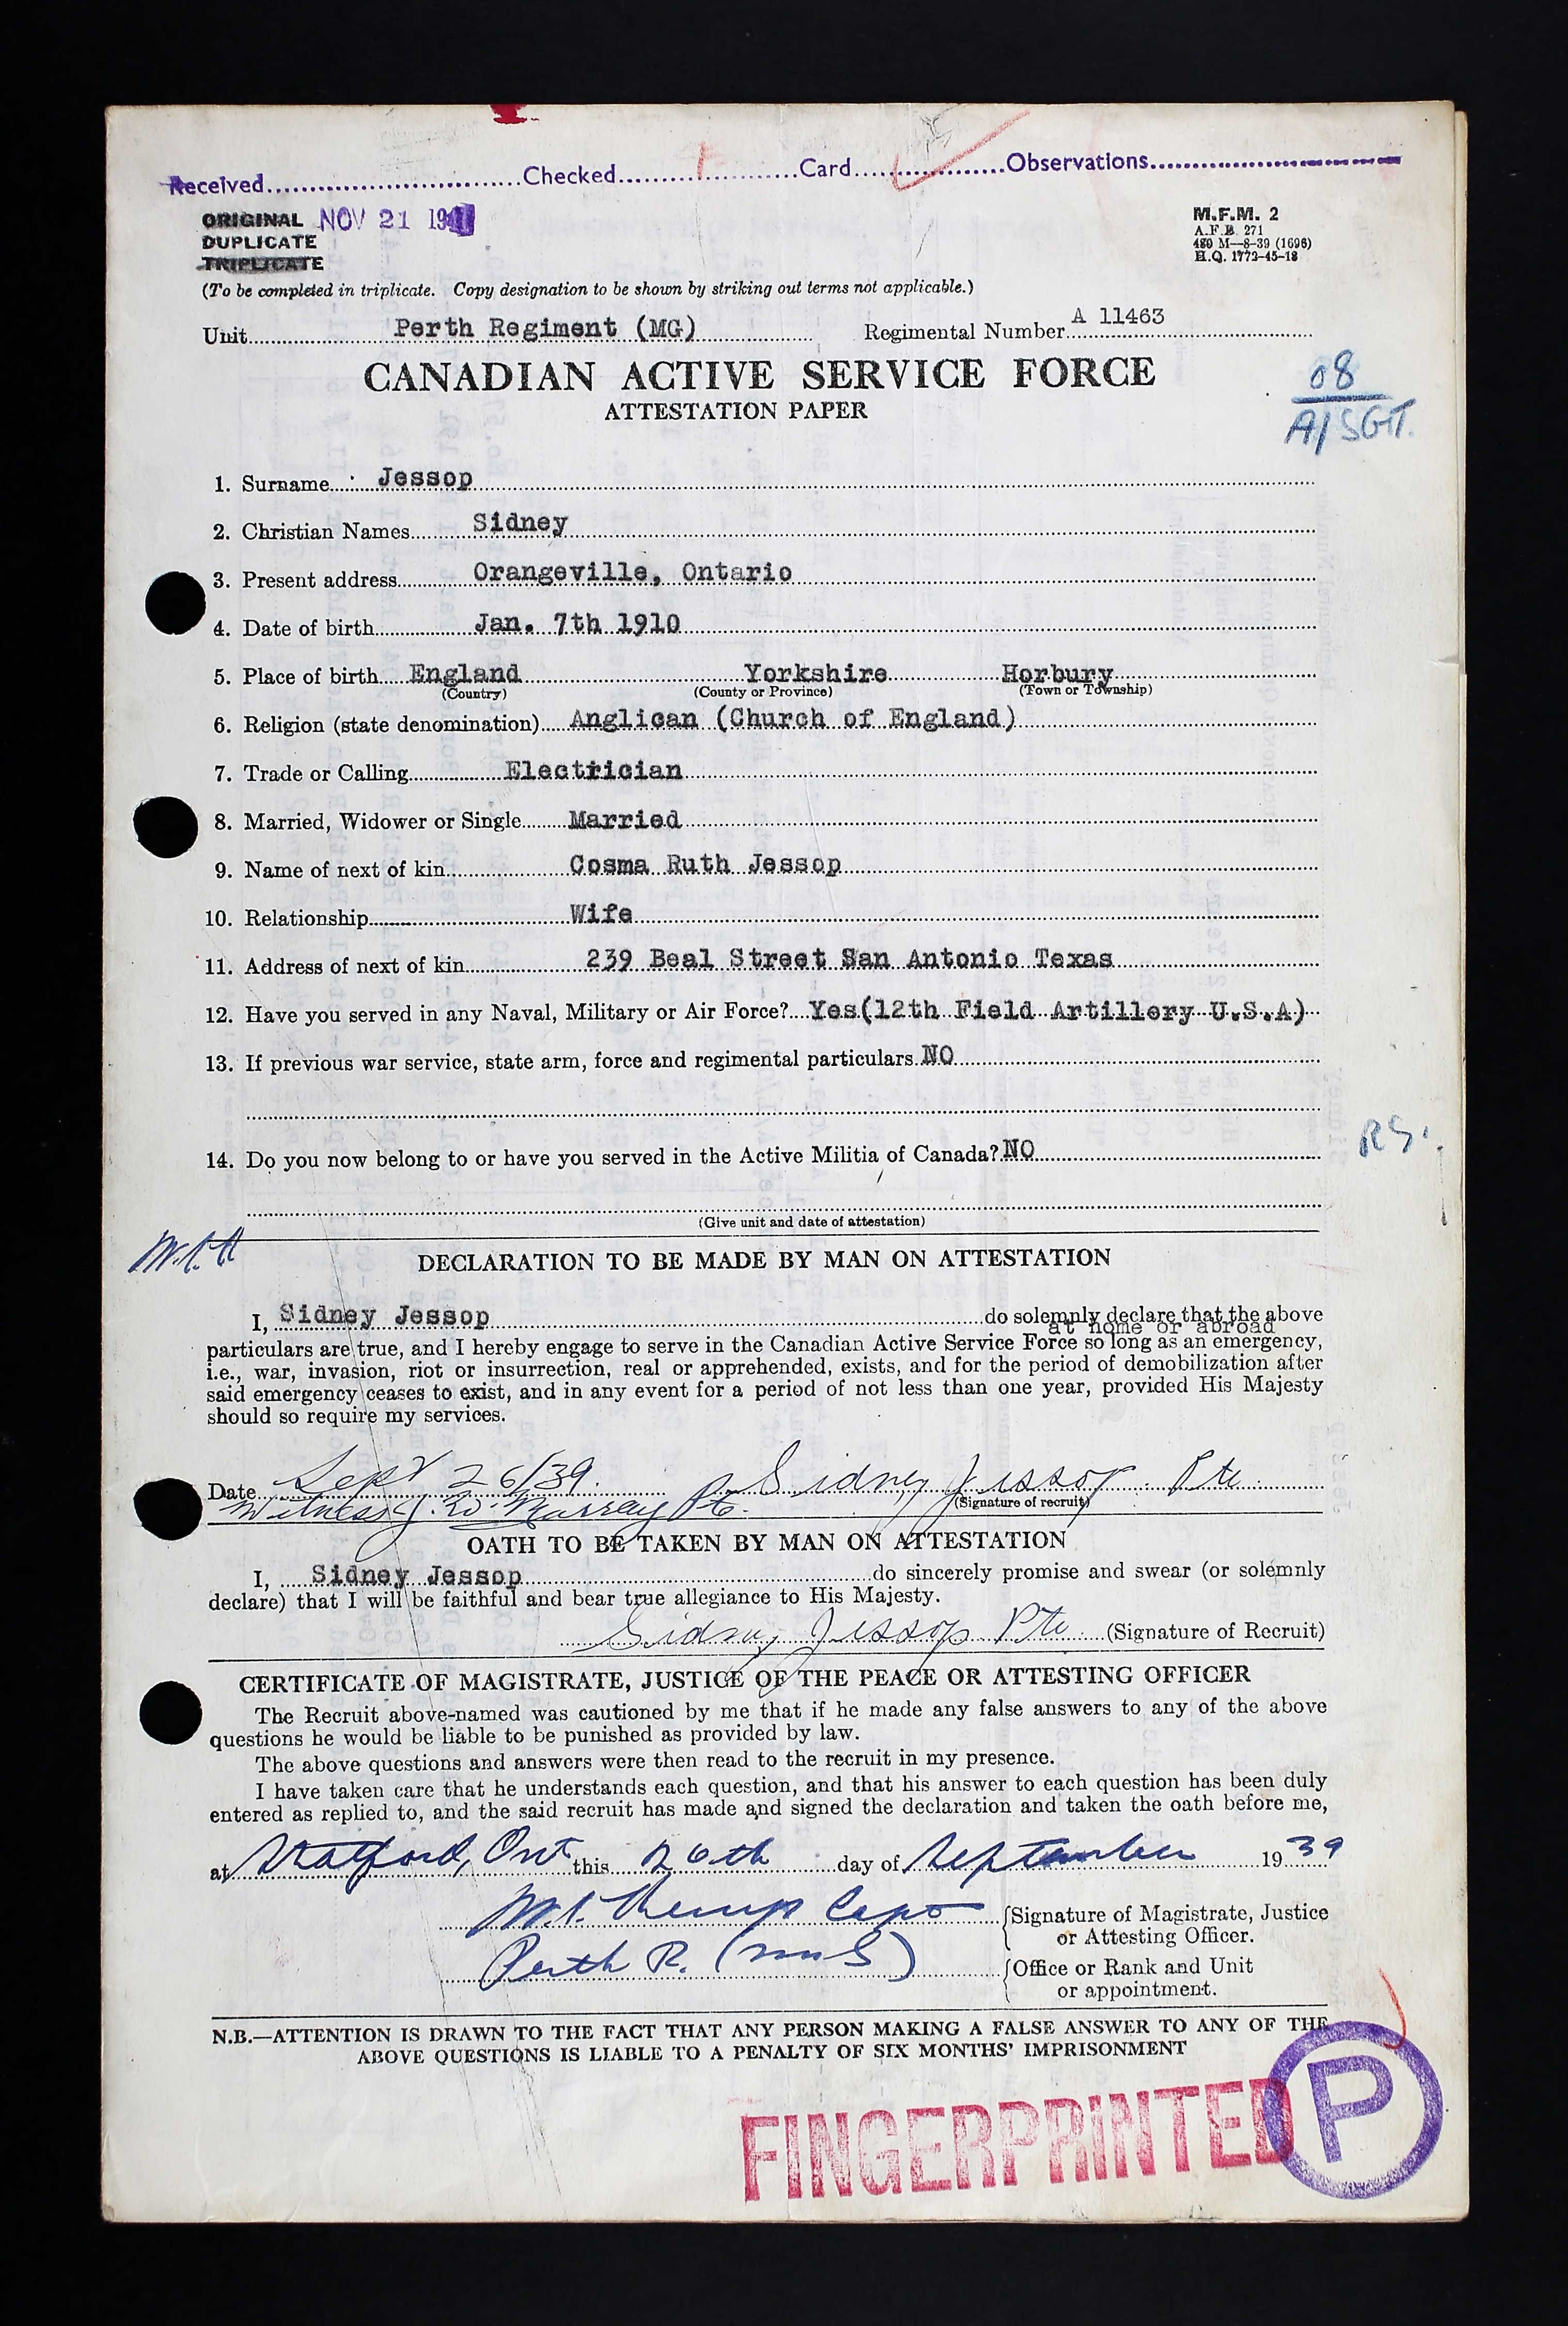 Received..............................Checked....................Card..................Observations..............................
ORIGINAL NOV 21 19
DUPLICATE
TRIPLICATE
M.F.M. 2
A.F.B. 271
480 M—8-39 (1696)
H.Q. 1772-45-18
(To be completed in triplicate. Copy designation to be shown by striking out terms not applicable.)
Unit Perth Regiment (MG) Regimental Number A 11463
CANADIAN ACTIVE SERVICE FORCE
ATTESTATION PAPER
08
A/SGT.
1. Surname Jessop
2. Christian Names Sidney
3. Present address Orangeville, Ontario
4. Date of birth Jan. 7th 1910
5. Place of birth England Yorkshire Horbury
(Country) (County or Province) (Town or Township)
6. Religion (state denomination) Anglican (Church of England)
7. Trade or Calling Electrician
8. Married, Widower or Single Married
9. Name of next of kin Cosma Ruth Jessop
10. Relationship Wife
11. Address of next of kin 239 Beal Street San Antonio Texas
12. Have you served in any Naval, Military or Air Force? Yes(12th Field Artillery U.S.A)
13. If previous war service, state arm, force and regimental particulars NO
14. Do you now belong to or have you served in the Active Militia of Canada? NO
RS.
(Give unit and date of attestation)
DECLARATION TO BE MADE BY MAN ON ATTESTATION
I, Sidney Jessop do solemnly declare that the above
at home or abroad
particulars are true, and I hereby engage to serve in the Canadian Active Service Force so long as an emergency,
i.e., war, invasion, riot or insurrection, real or apprehended, exists, and for the period of demobilization after
said emergency ceases to exist, and in any event for a period of not less than one year, provided His Majesty
should so require my services.
Date Sept 26/39. Sidney Jessop Pte
Witness J. W. Murray Pte. (Signature of recruit)
OATH TO BE TAKEN BY MAN ON ATTESTATION
I, Sidney Jessop do sincerely promise and swear (or solemnly
declare) that I will be faithful and bear true allegiance to His Majesty.
Sidney Jessop Pte. (Signature of Recruit)
CERTIFICATE OF MAGISTRATE, JUSTICE OF THE PEACE OR ATTESTING OFFICER
The Recruit above-named was cautioned by me that if he made any false answers to any of the above
questions he would be liable to be punished as provided by law.
The above questions and answers were then read to the recruit in my presence.
I have taken care that he understands each question, and that his answer to each question has been duly
entered as replied to, and the said recruit has made and signed the declaration and taken the oath before me,
at Stratford, Ont this 26th day of September 1939
Capt Signature of Magistrate, Justice
or Attesting Officer.
Perth R. Office or Rank and Unit
or appointment.
N.B.—ATTENTION IS DRAWN TO THE FACT THAT ANY PERSON MAKING A FALSE ANSWER TO ANY OF THE
ABOVE QUESTIONS IS LIABLE TO A PENALTY OF SIX MONTHS' IMPRISONMENT
FINGERPRINTED
P